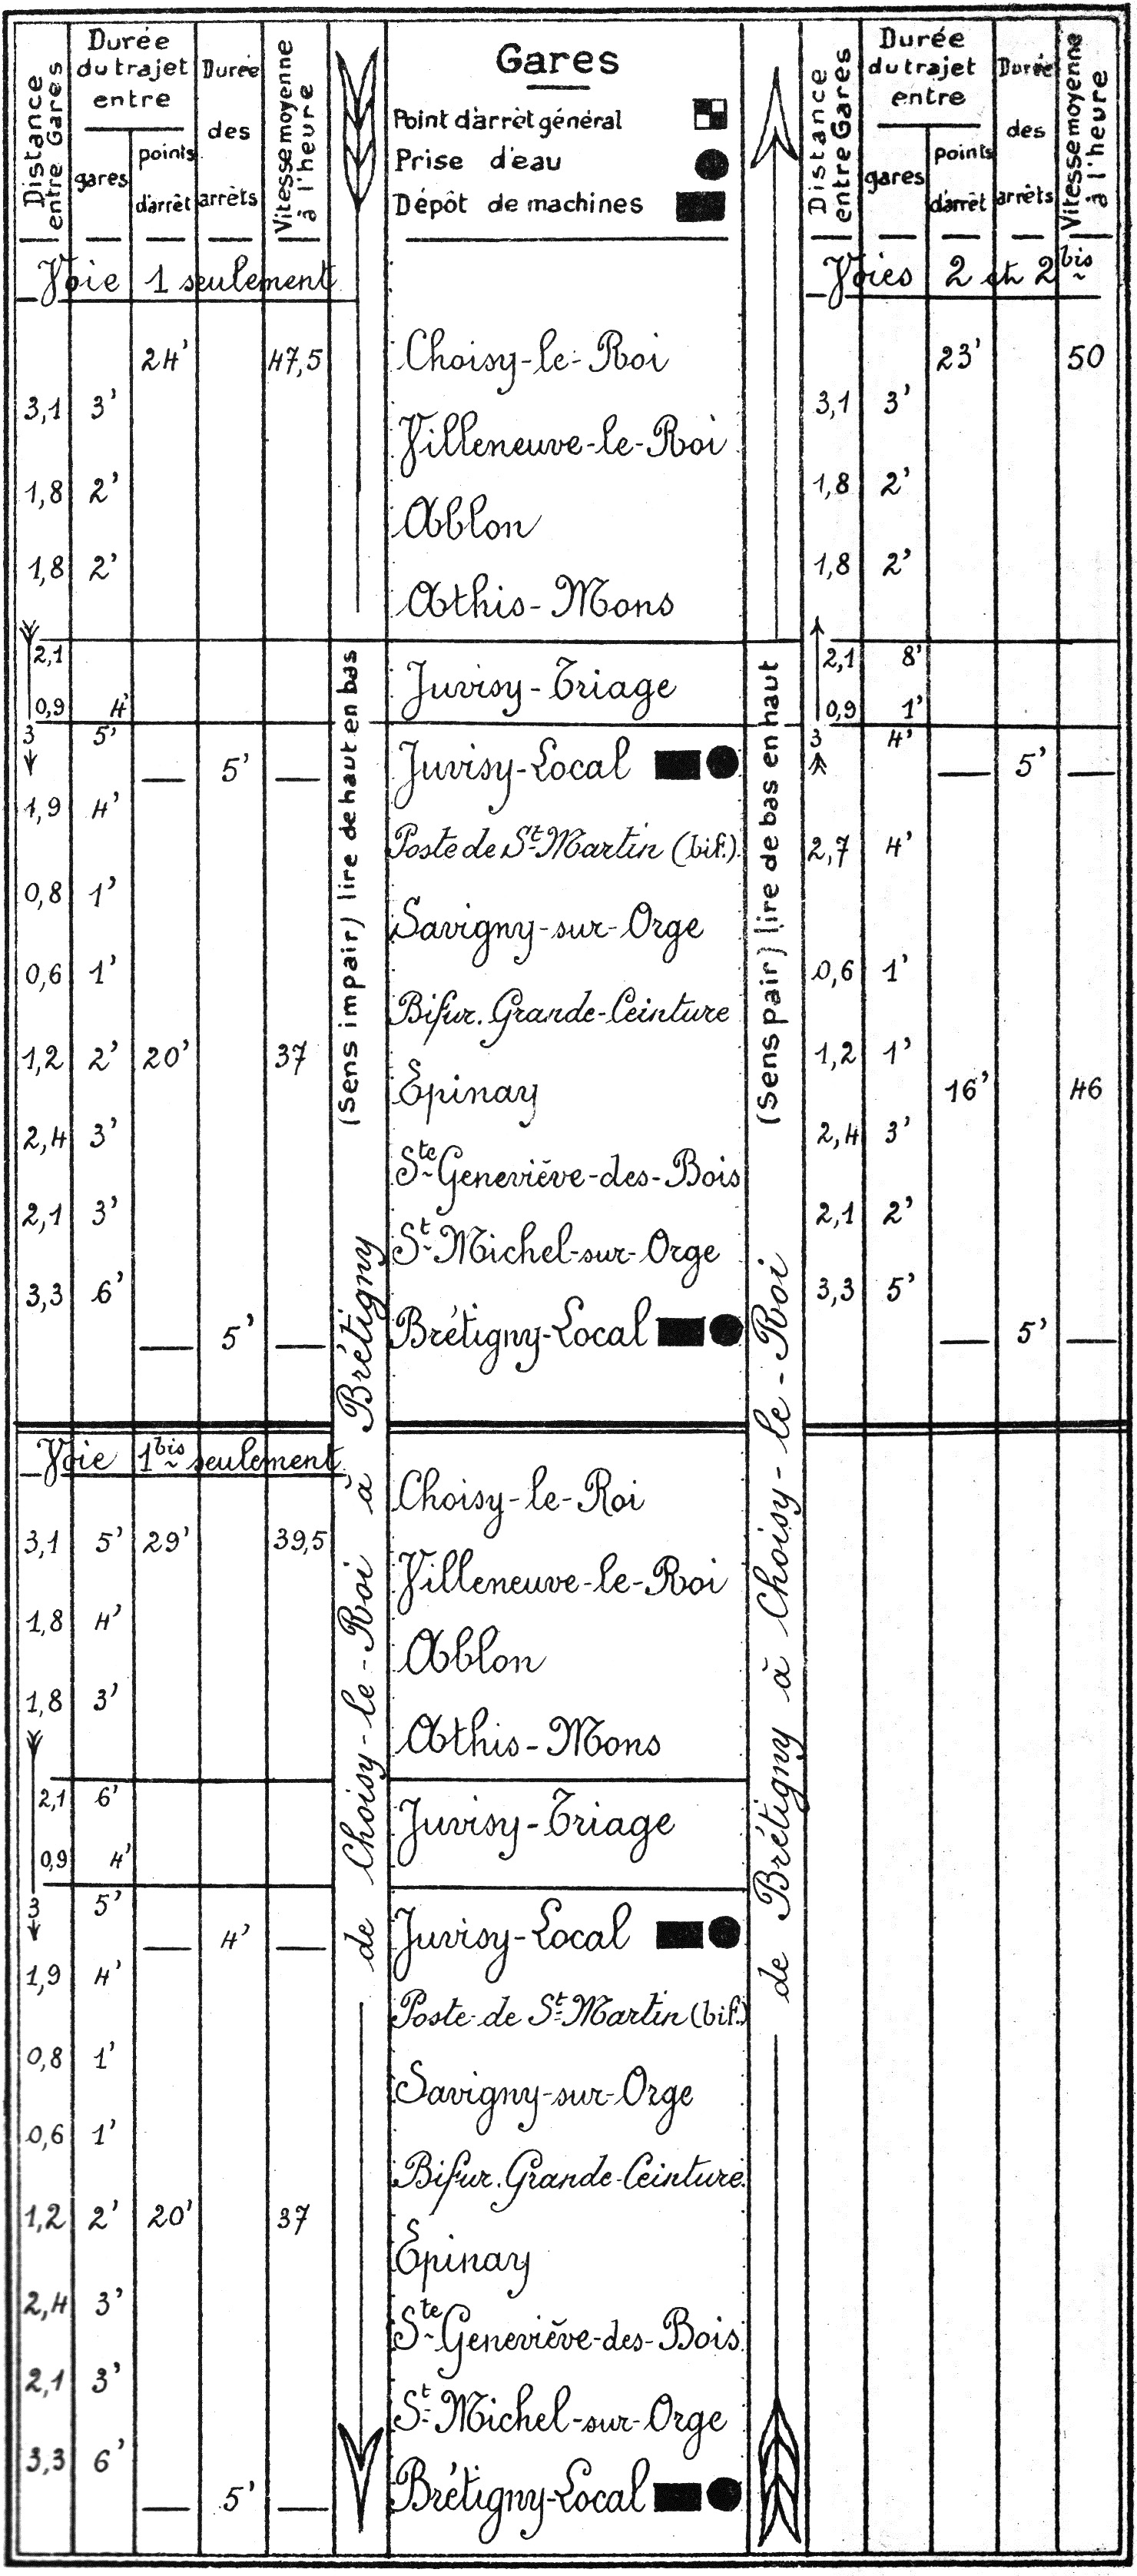 Distance entre Gares | Durée du trajet entre gares | points d'arrêt | Durée des arrêts | Vitesse moyenne à l'heure | Gares | Distance entre Gares | Durée du trajet entre gares | points d'arrêt | Durée des arrêts | Vitesse moyenne à l'heure
Point d'arrêt général
Prise d'eau
Dépôt de machines
Voie 1 seulement | Voies 2 et 2 bis
24' 47,5 Choisy-le-Roi 23' 50
3,1 3' 3,1 3'
Villeneuve-le-Roi
1,8 2' 1,8 2'
Ablon
1,8 2' 1,8 2'
Athis-Mons
2,1 2,1 8'
Juvisy-Triage
0,9 4' 0,9 1'
3 5' 3 4'
5' Juvisy-Local 5'
1,9 4'
Poste de St Martin (bif.) 2,7 4'
0,8 1'
Savigny-sur-Orge
0,6 1' 0,6 1'
Bifur. Grande-Ceinture
1,2 2' 20' 37 1,2 1'
Epinay 16' 46
2,4 3' 2,4 3'
Ste Geneviève-des-Bois
2,1 3' 2,1 2'
St Michel-sur-Orge
3,3 6' 3,3 5'
5' Brétigny-Local 5'
(Sens impair) lire de haut en bas
de Choisy-le-Roi à Brétigny
(Sens pair) lire de bas en haut
de Brétigny à Choisy-le-Roi
Voie 1 bis seulement
Choisy-le-Roi
3,1 5' 29' 39,5
Villeneuve-le-Roi
1,8 4'
Ablon
1,8 3'
Athis-Mons
2,1 6'
Juvisy-Triage
0,9 4'
3 5'
4' Juvisy-Local
1,9 4'
Poste de St Martin (bif.)
0,8 1'
Savigny-sur-Orge
0,6 1'
Bifur. Grande-Ceinture
1,2 2' 20' 37
Epinay
2,4 3'
Ste Geneviève-des-Bois
2,1 3'
St Michel-sur-Orge
3,3 6'
5' Brétigny-Local